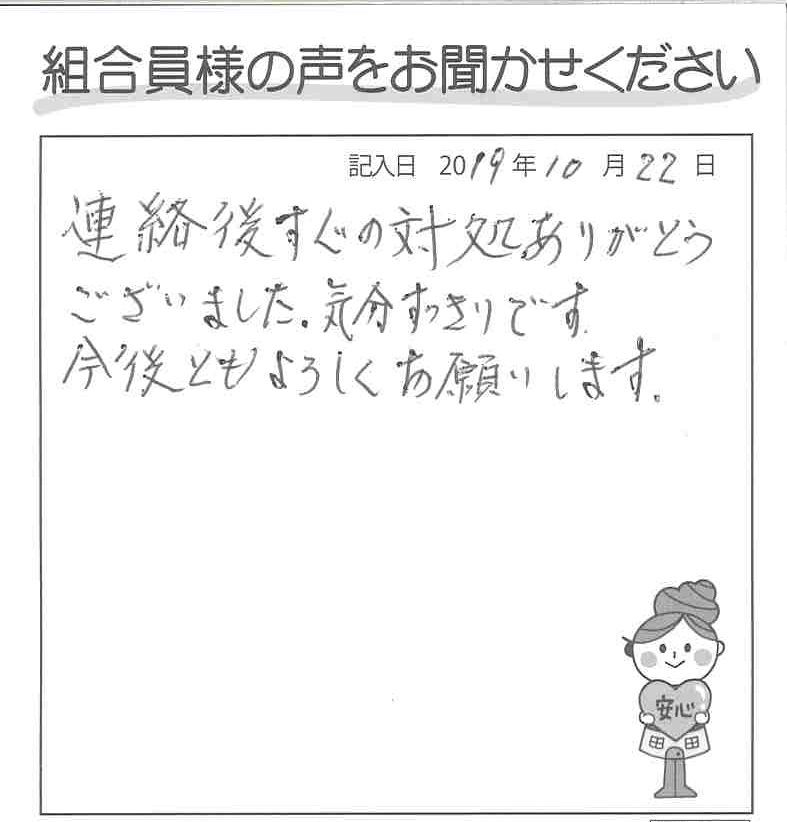 組合員様の声をお聞かせください
記入日 2019年10月22日
連絡後すぐの対処ありがとう
ございました。気分すっきりです。
今後ともよろしくお願いします。
安心